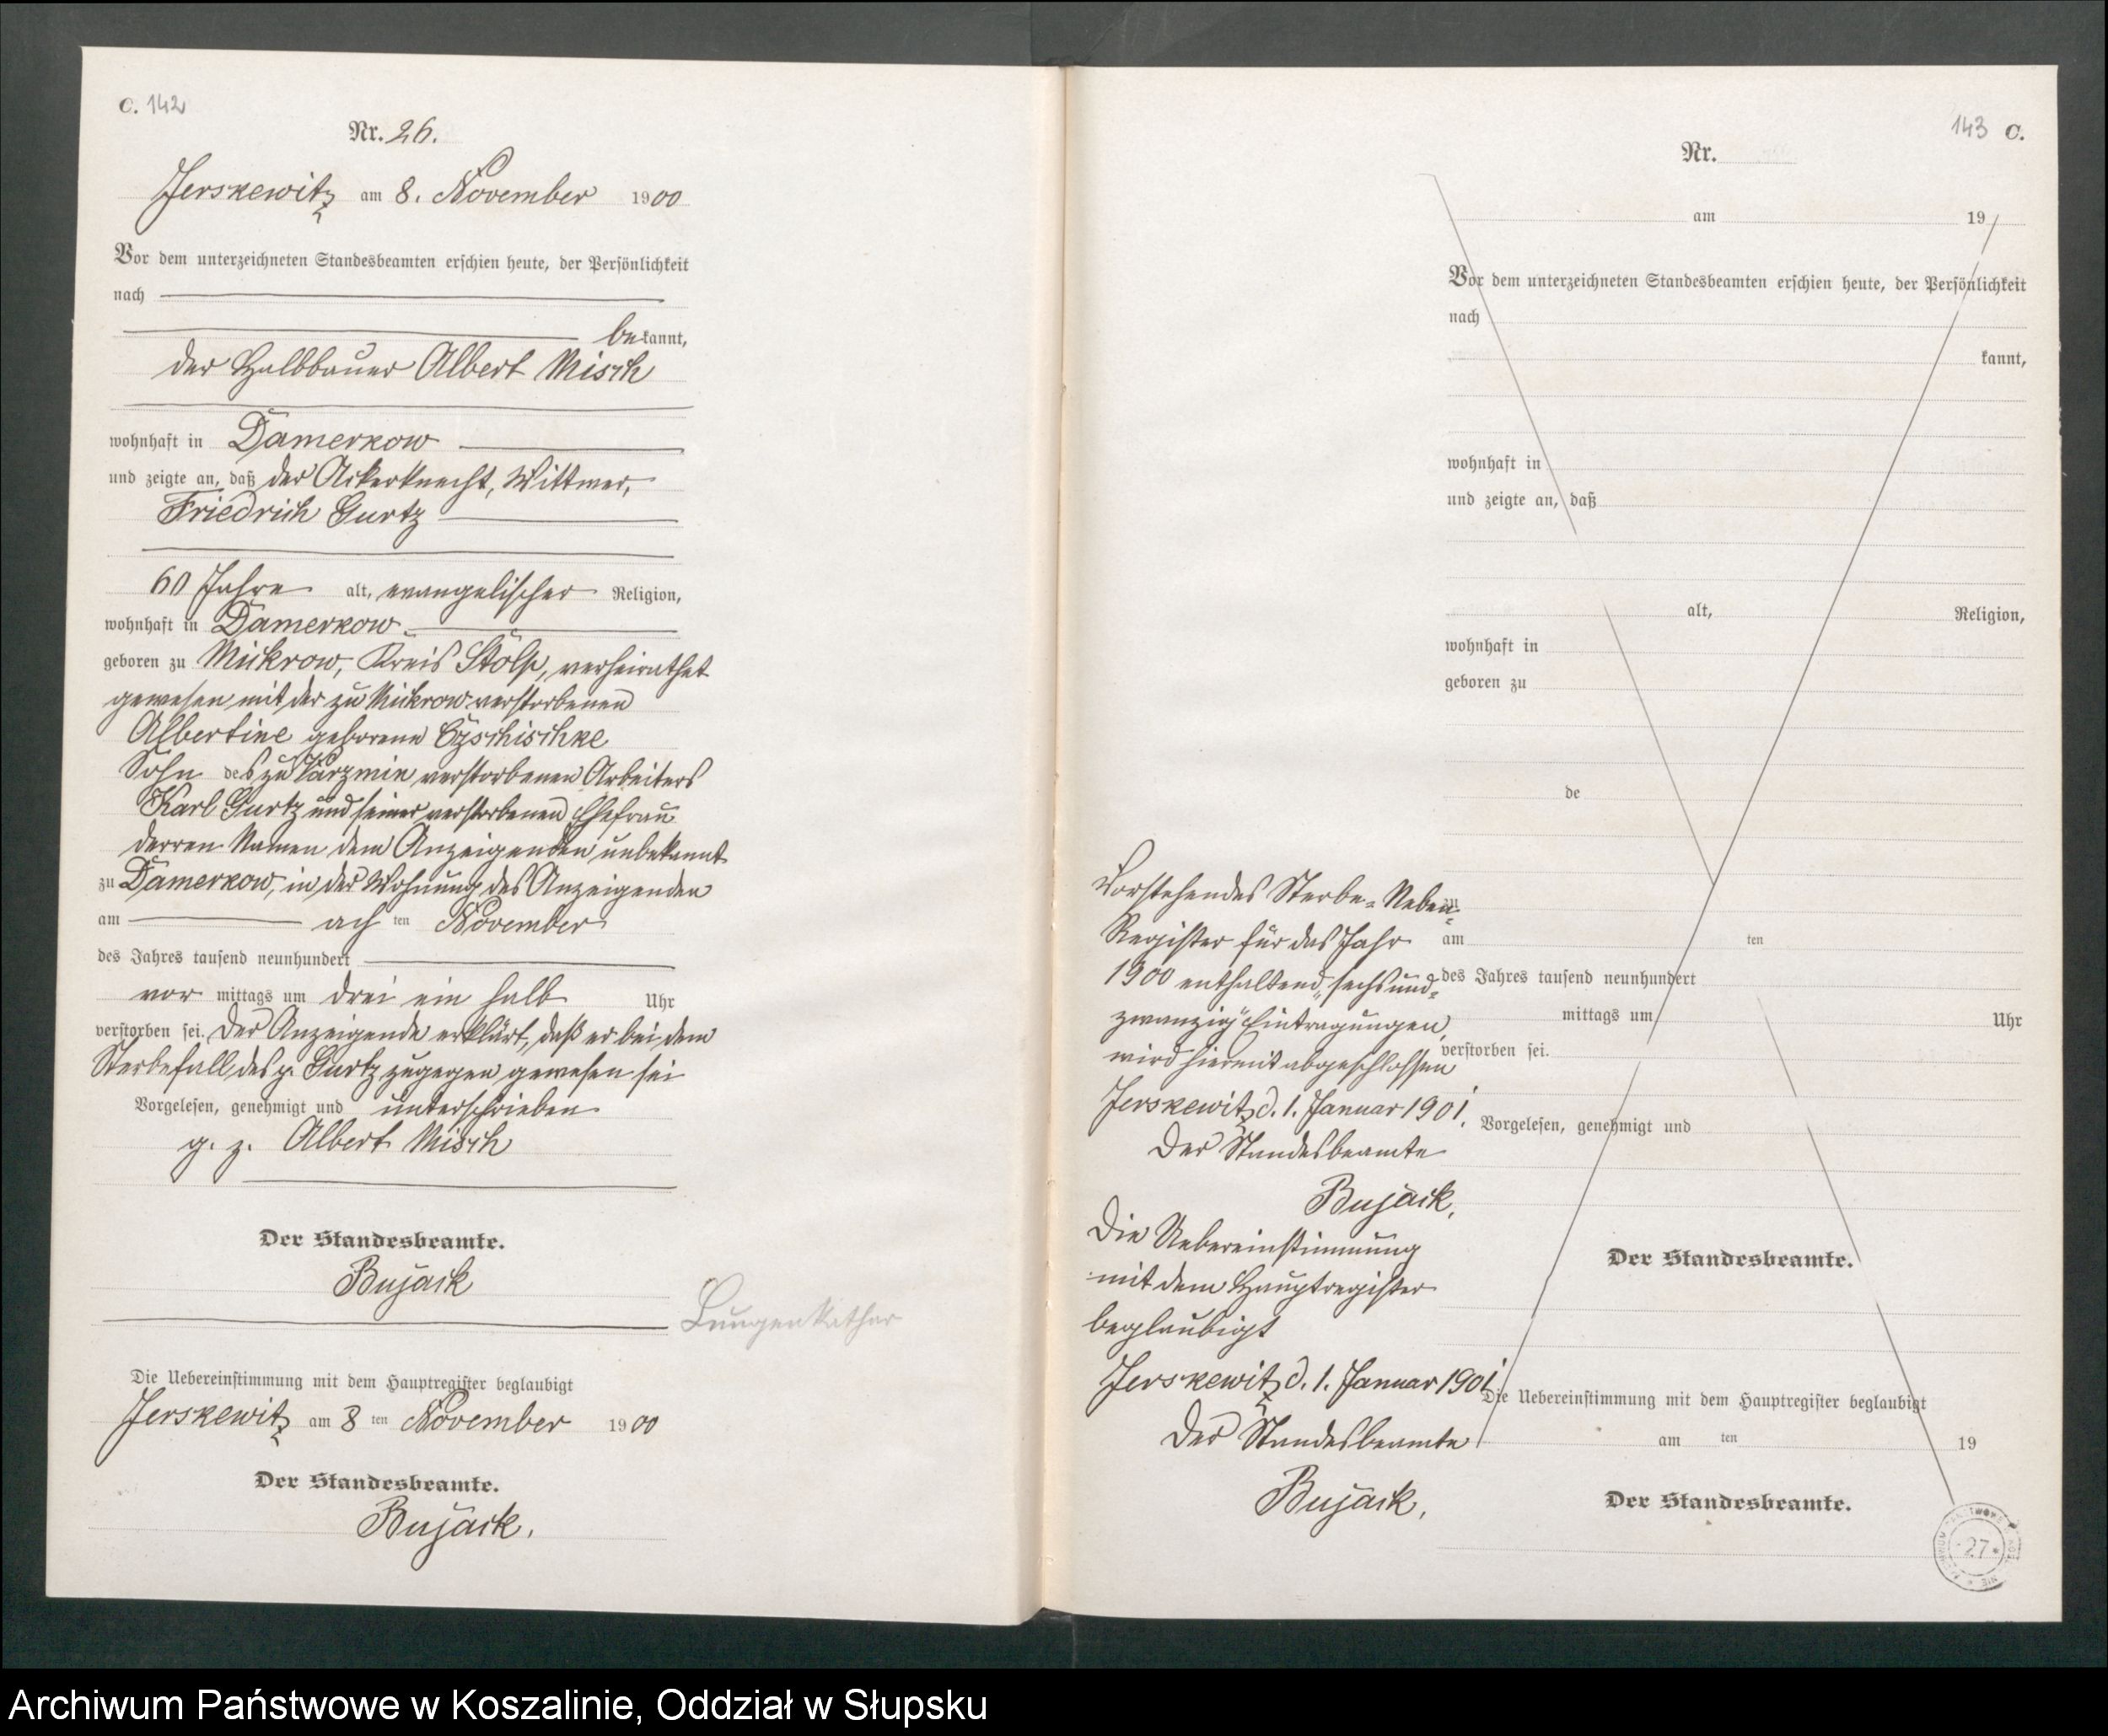 C. 142
Nr. 26.
Jerskewitz am 8. November 1900
Vor dem unterzeichneten Standesbeamten erschien heute, der Persönlichkeit
nach
bekannt,
der Halbbauer Albert Misch
wohnhaft in Damerkow
und zeigte an, daß der Ackerknecht, Wittwer,
Friedrich Gurtz
60 Jahre alt, evangelischer Religion,
wohnhaft in Damerkow
geboren zu Mickrow, Kreis Stolp, verheirathet
gewesen mit der zu Mickrow verstorbenen
Albertine geborene Czschischke
Sohn des zu verstorbenen Arbeiters
Karl Gurtz und seiner verstorbenen Ehefrau
derren Namen dem Anzeigenden unbekannt
zu Damerkow, in der Wohnung des Anzeigenden
am achten November
des Jahres tausend neunhundert
vor mittags um drei ein halb Uhr
verstorben sei. Der Anzeigende erklärt, daß er bei dem
Sterbefall des p. Gurtz zugegen gewesen sei
Vorgelesen, genehmigt und unterschrieben
g. z. Albert Misch
Der Standesbeamte.
Bujack
Lungenkathar
Die Uebereinstimmung mit dem Hauptregister beglaubigt
Jerskewitz am 8 ten November 1900
Der Standesbeamte.
Bujack.
143 C.
Nr.
am 19
Vor dem unterzeichneten Standesbeamten erschien heute, der Persönlichkeit
nach
kannt,
wohnhaft in
und zeigte an, daß
alt, Religion,
wohnhaft in
geboren zu
de
zu
am ten
des Jahres tausend neunhundert
mittags um Uhr
verstorben sei.
Vorgelesen, genehmigt und
Der Standesbeamte.
Die Uebereinstimmung mit dem Hauptregister beglaubigt
am ten 19
Der Standesbeamte.
Vorstehendes Sterbe-Neben-
Register für das Jahr
1900 enthaltend „sechsund-
zwanzig" Eintragungen,
wird hiermit abgeschlossen
Jerskewitz d. 1. Januar 1901.
Der Standesbeamte
Bujack.
Die Uebereinstimmung
mit dem Hauptregister
beglaubigt
Jerskewitz d. 1. Januar 1901
Der Standesbeamte
Bujack.
27
Archiwum Państwowe w Koszalinie, Oddział w Słupsku